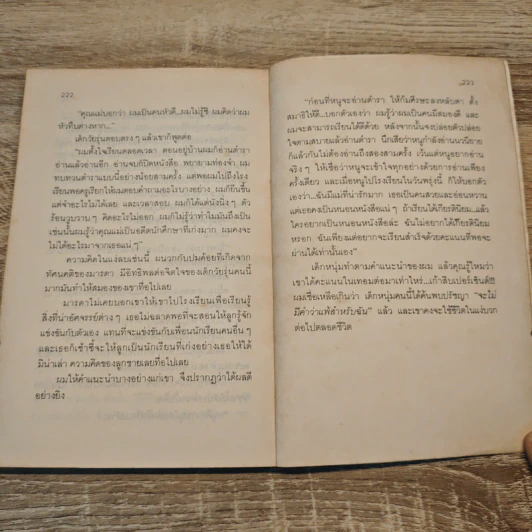 ๒๒๒
"คุณแม่บอกว่า ผมเป็นคนหัวดี...ผมไม่รู้ซี ผมคิดว่าผม
หัวทึบต่างหาก..."
เด็กวัยรุ่นตอบตรง ๆ แล้วเขาก็พูดต่อ
"ผมตั้งใจเรียนตลอดเวลา ตอนอยู่บ้านผมก็อ่านตำรา
อ่านแล้วอ่านอีก อ่านจบก็ปิดหนังสือ พยายามท่องจำ ผม
ทบทวนตำราแบบนี้อย่างน้อยสามครั้ง แต่พอผมไปถึงโรง
เรียนพอครูเรียกให้ผมตอบคำถามอะไรบางอย่าง ผมก็ยืนขึ้น
แต่จำอะไรไม่ได้เลย และเวลาสอบ ผมก็ได้แต่นั่งนิ่ง ๆ ตัว
ร้อนวูบวาบ ๆ คิดอะไรไม่ออก ผมก็ไม่รู้ว่าทำไมมันถึงเป็น
เช่นนั้นผมรู้ว่าคุณแม่เป็นอดีตนักศึกษาที่เก่งมาก ผมคงจะ
ไม่ได้อะไรมาจากเธอแน่ ๆ"
ความคิดในแง่ลบเช่นนี้ ผนวกกับปมด้อยที่เกิดจาก
ทัศนคติของมารดา มีอิทธิพลต่อจิตใจของเด็กวัยรุ่นคนนี้
มากมันทำให้สมองของเขาทื่อไปเลย
มารดาไม่เคยบอกเขาให้เขาไปโรงเรียนเพื่อเรียนรู้
สิ่งที่น่าอัศจรรย์ต่าง ๆ เธอไม่ฉลาดพอที่จะสอนให้ลูกรู้จัก
แข่งขันกับตัวเอง แทนที่จะแข่งขันกับเพื่อนนักเรียนคนอื่น ๆ
และเธอก็เข้าชี้จะให้ลูกเป็นนักเรียนที่เก่งอย่างเธอให้ได้
มิน่าเล่า ความคิดของลูกชายเลยทื่อไปเลย
ผมให้คำแนะนำบางอย่างแก่เขา ซึ่งปรากฏว่าได้ผลดี
อย่างยิ่ง
๒๒๓
"ก่อนที่หนูจะอ่านตำรา ให้ก้มศีรษะลงหลับตา ตั้ง
สมาธิให้ดี...บอกตัวเองว่า ผมรู้ว่าผมเป็นคนมีสมองดี และ
ผมจะสามารถเรียนได้ดีด้วย หลังจากนั้นจงปล่อยตัวปล่อย
ใจตามสบายแล้วอ่านตำรา นึกเสียว่าหนูกำลังอ่านนวนิยาย
ก็แล้วกันไม่ต้องอ่านถึงสองสามครั้ง เว้นแต่หนูอยากอ่าน
จริง ๆ ให้เชื่อว่าหนูจะเข้าใจทุกอย่างด้วยการอ่านเพียง
ครั้งเดียว และเมื่อหนูไปโรงเรียนในวันพรุ่งนี้ ก็ให้บอกตัว
เองว่า...ฉันมีแม่ที่น่ารักมาก เธอเป็นคนสวยและอ่อนหวาน
แต่เธอคงเป็นหนอนหนังสือแน่ ๆ ถ้าเรียนได้เกียรตินิยม...แล้ว
ใครอยากเป็นหนอนหนังสือล่ะ ฉันไม่อยากได้เกียรตินิยม
หรอก ฉันเพียงแต่อยากจะเรียนสำเร็จด้วยคะแนนที่พอจะ
ผ่านได้เท่านั้นเอง"
เด็กหนุ่มทำตามคำแนะนำของผม แล้วคุณรู้ไหมว่า
เขาได้คะแนนในเทอมต่อมาเท่าไหร่...เก้าสิบเปอร์เซ็นต์!!
ผมเชื่อเหลือเกินว่า เด็กหนุ่มคนนี้ได้ค้นพบปรัชญา "จะไม่
มีคำว่าแพ้สำหรับฉัน" แล้ว และเขาคงจะใช้ชีวิตในแง่บวก
ต่อไปตลอดชีวิต